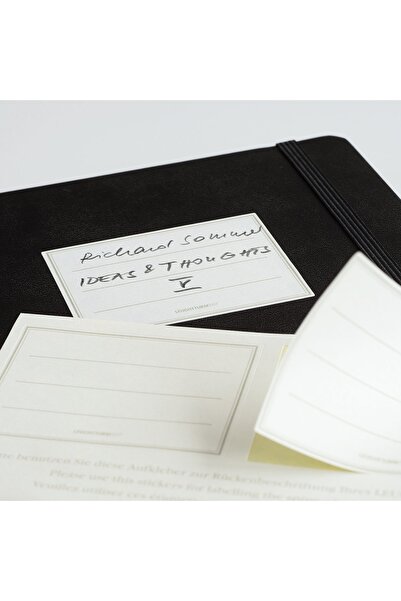 Richard Sommer
IDEAS & THOUGHTS
V
LEUCHTTURM1917
LEUCHTTURM1917
benutzen Sie diese Aufkleber zur Rückenbeschriftung Ihres LEU
Please use this stickers for labelling the spine
Veuillez utiliser ces